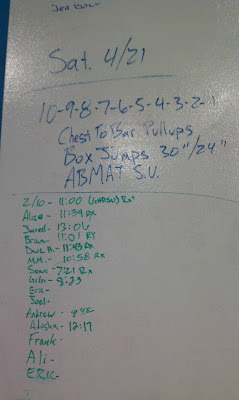 Sat. 4/21
10-9-8-7-6-5-4-3-2-1
Chest To Bar Pullups
Box Jumps 30"/24"
ABMAT S.U.
2/10 - 11:00 Rx
Alice - 11:39 Rx
Jarred - 13:06
Brian - 11:01 RX
Dave H. - 11:43 Rx
M.M. - 10:58 Rx
Sean - 7:21 Rx
8:23
Eric -
Joel -
Andrew -
Alaska - 12:17
Frank -
Ali -
ERIC -